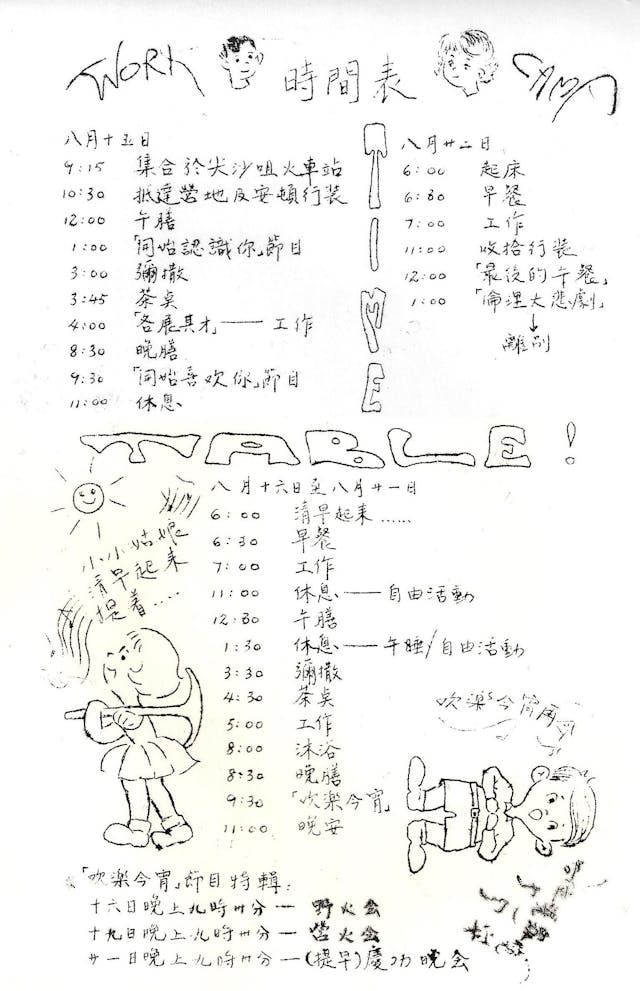 WORK 時間表 CAMP
TIME
八月十五日
9:15 集合於尖沙咀火車站
10:30 抵達營地及安頓行裝
12:00 午膳
1:00 「開始認識你」節目
3:00 彌撒
3:45 茶桌
4:00 「各展其才」—— 工作
8:30 晚膳
9:30 「開始喜欢你」節目
11:00 休息
八月廿二日
6:00 起床
6:30 早餐
7:00 工作
11:00 收拾行装
12:00 「最後的午餐」
1:00 「倫理大悲劇」
↓
離別
TABLE!
八月十六日至八月廿一日
6:00 清早起來……
6:30 早餐
7:00 工作
11:00 休息——自由活動
12:30 午膳
1:30 休息——午睡/自由活動
3:30 彌撒
4:30 茶桌
5:00 工作
8:00 沐浴
8:30 晚膳
9:30 「吹樂今宵」
11:00 晚安
小小姑娘
清早起來
提着....
吹樂今宵
「吹樂今宵」節目特輯:
十六日晚上九時卅分—野火会
十九日晚上九時卅分—营火会
廿一日晚上九時卅分—(提早)慶功晚会